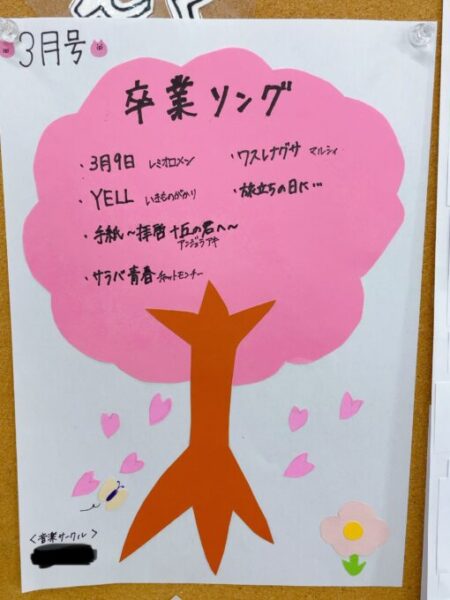 3月号
卒業ソング
・3月9日 レミオロメン
・YELL いきものがかり
・手紙~拝啓 十五の君へ~
アンジェラアキ
・サラバ青春 チャットモンチー
・ワスレナグサ マルシィ
・旅立ちの日に…
<音楽サークル>